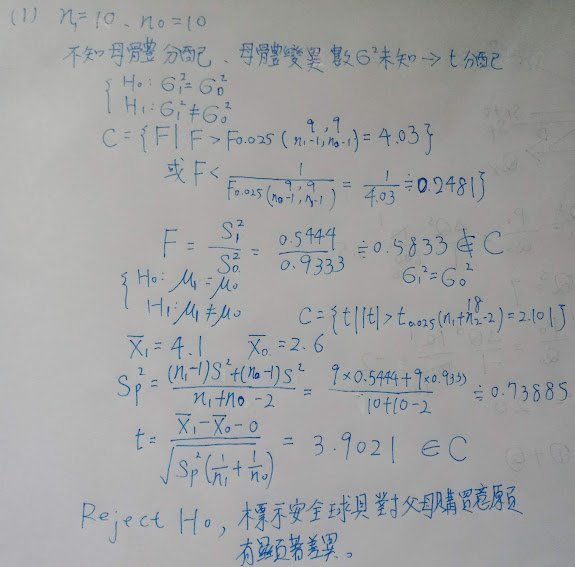 (1) n₁=10、n₀=10
不知母體分配、母體變異數σ²未知→t分配
{H₀:σ₁²=σ₀²
H₁:σ₁²≠σ₀²
C={F|F>F0.025(n₁-1, n₀-1)=4.03}
9, 9
或F<1/F0.025(n₀-1, n₁-1)=1/4.03≒0.2481}
9, 9
F=S₁²/S₀²=0.5444/0.9333≒0.5833∉C
σ₁²=σ₀²
{H₀:μ₁=μ₀
H₁:μ₁≠μ₀
C={t||t|>t0.025(n₁+n₂-2)=2.101}
18
X̄₁=4.1 X̄₀=2.6
Sp²=((n₁-1)S²+(n₀-1)S²)/(n₁+n₀-2)=(9×0.5444+9×0.9333)/(10+10-2)≒0.73885
t=(X̄₁-X̄₀-0)/√(Sp²(1/n₁+1/n₀))=3.9021∈C
Reject H₀,標示安全球具對父母購買意願
有顯著差異。